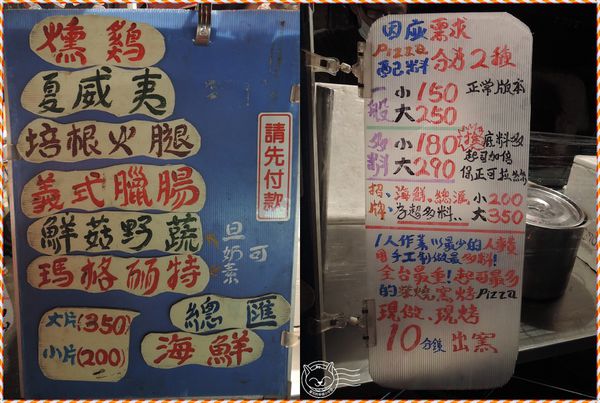 燻鷄
夏威夷
培根火腿
義式臘腸
鮮菇野蔬
瑪格麗特
總匯
海鮮
大片(350)
小片(200)
請先付款
旦奶素可
因應需求
Pizza
配料分為2種
一般
小150
大250
正常版本
多料
小180
大290
起司加倍
招牌
海鮮、總滙
小200
大350
1人作業以最少的人事費用
手工制做最多料!
全台最重!起司最多
的柴燒窯烤Pizza
現做、現烤
10分鐘出窯